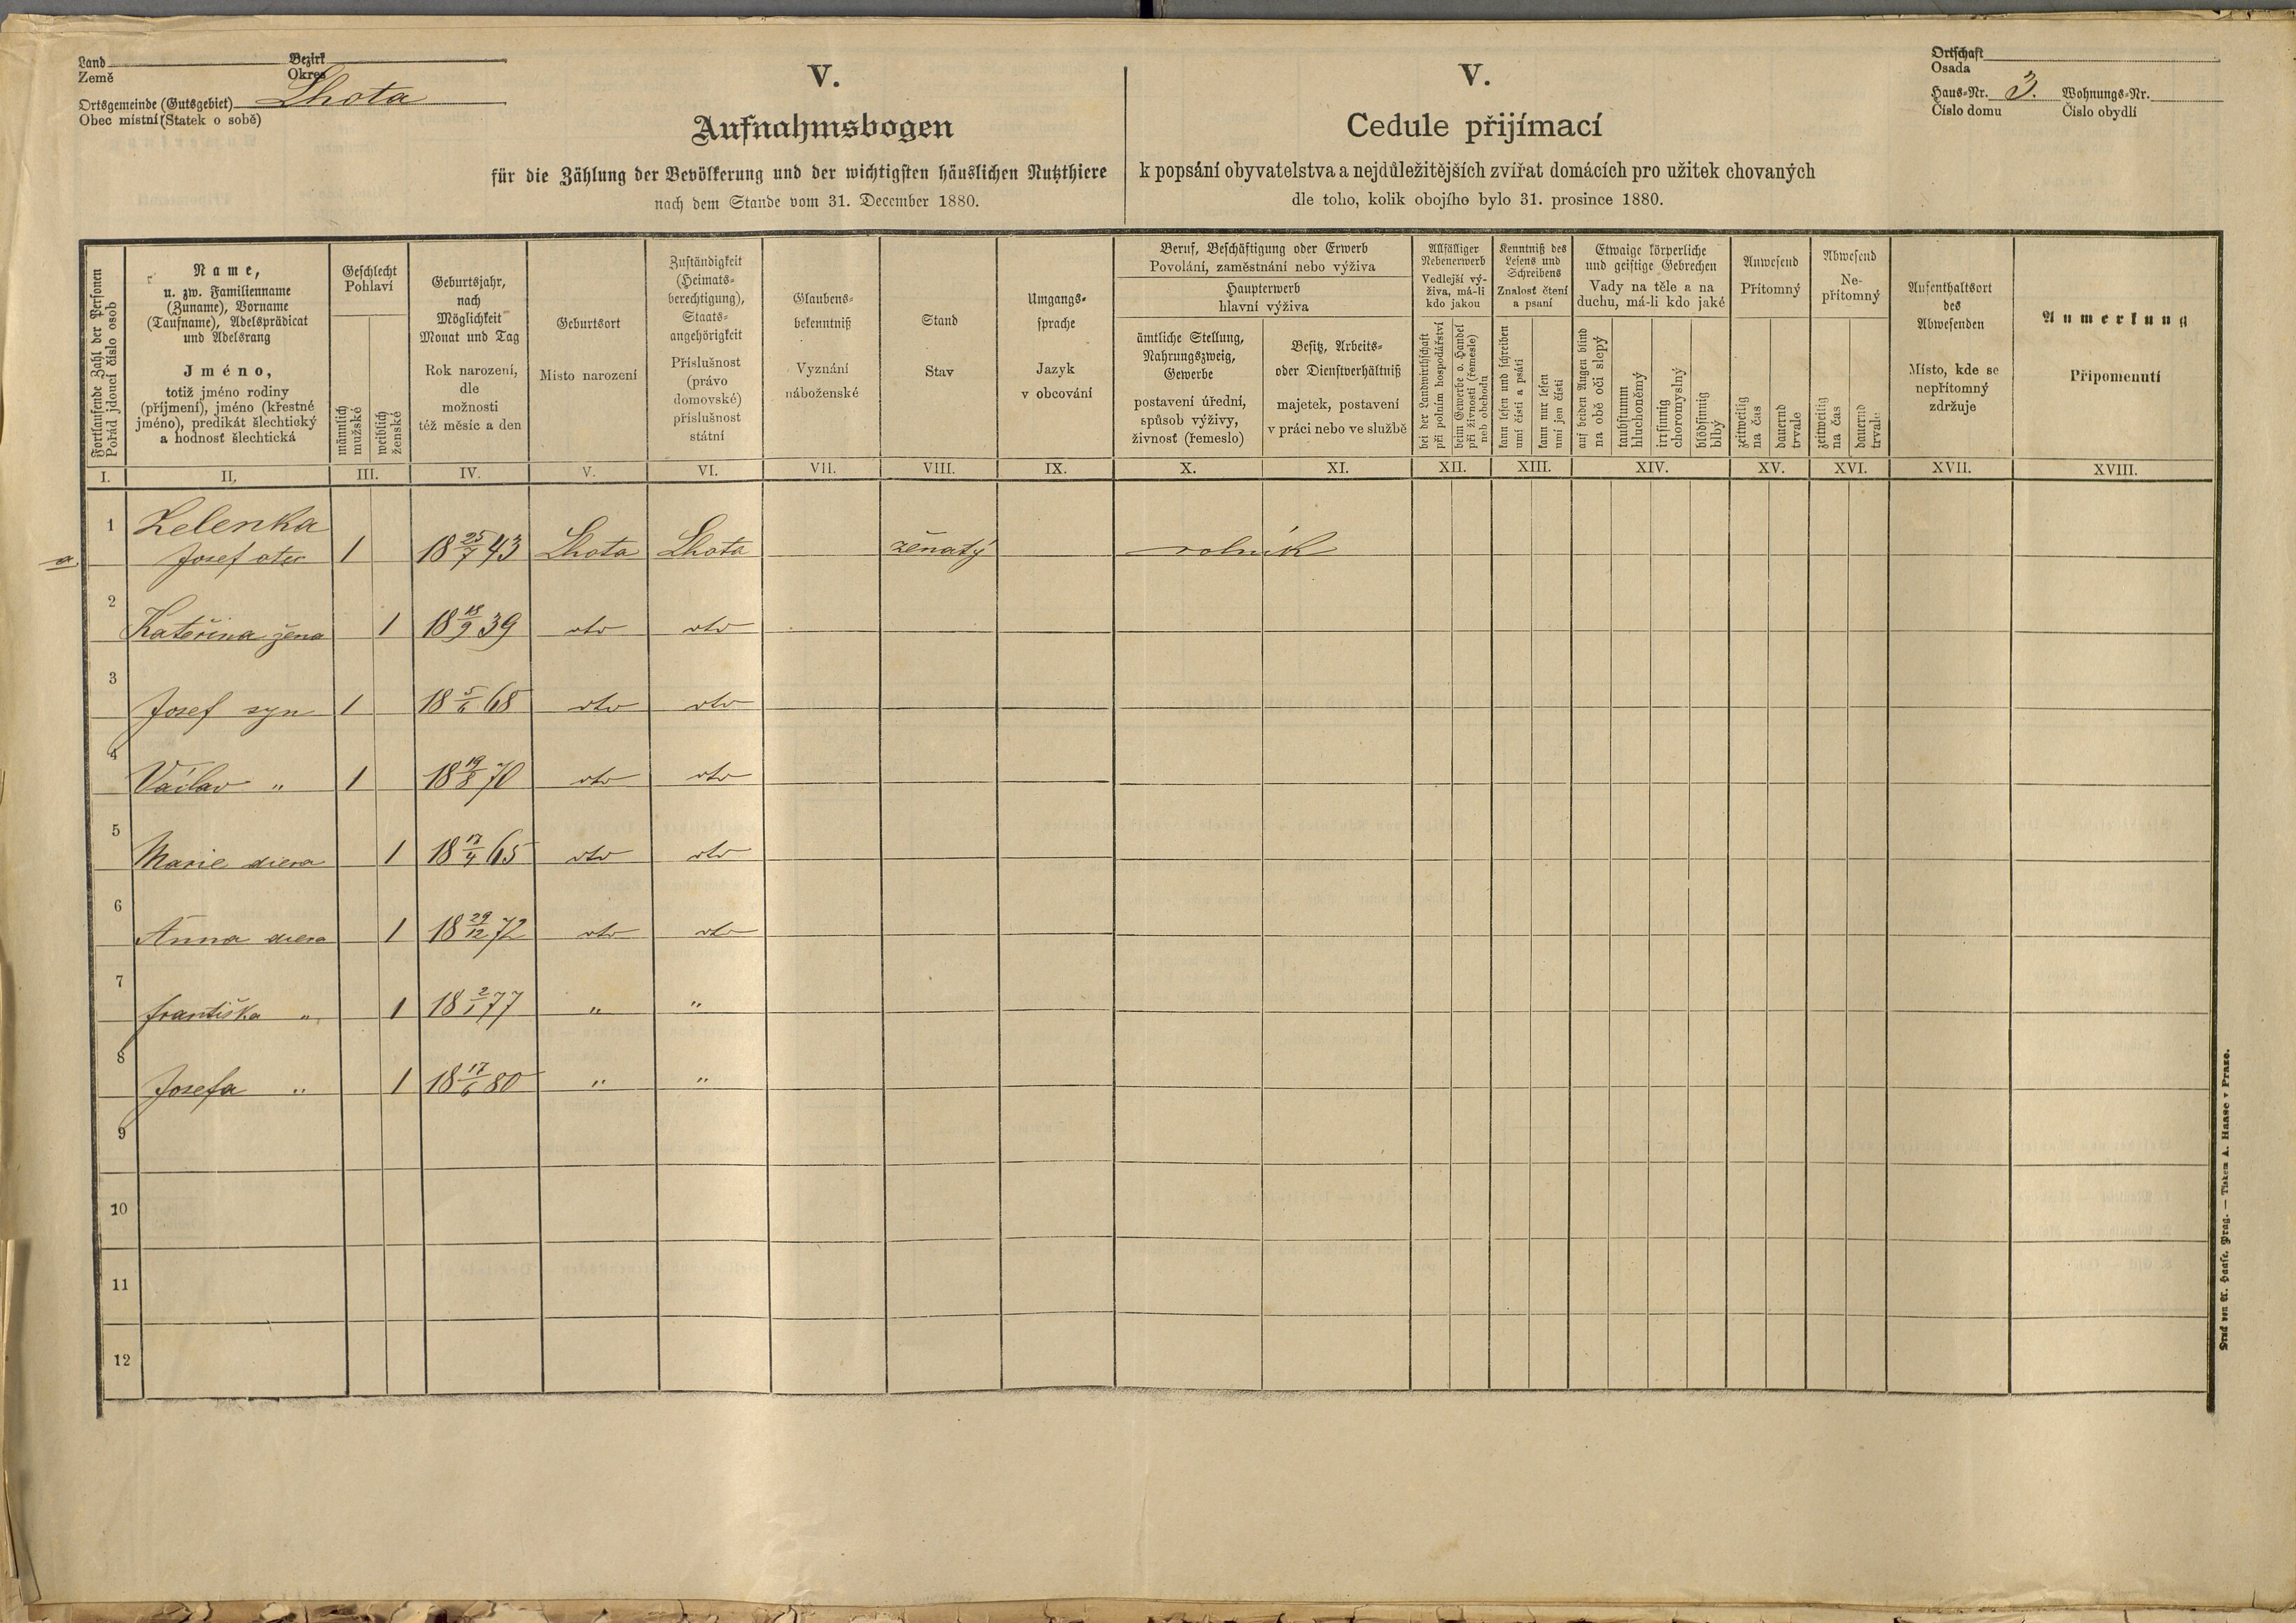 Land Bezirk
Země Okres
Ortsgemeinde (Gutsgebiet) Lhota
Obec místní (Statek o sobě)
V.
Aufnahmsbogen
für die Zählung der Bevölkerung und der wichtigsten häuslichen Nutzthiere
nach dem Stande vom 31. December 1880.
V.
Cedule přijímací
k popsání obyvatelstva a nejdůležitějších zvířat domácích pro užitek chovaných
dle toho, kolik obojího bylo 31. prosince 1880.
Ortschaft
Osada
Haus-Nr. 3. Wohnungs-Nr.
Číslo domu Číslo obydlí
Fortlaufende Zahl der Personen
Pořád jdoucí číslo osob
Name,
u. zw. Familienname
(Zuname), Vorname
(Taufname), Adelsprädicat
und Adelsrang
Jméno,
totiž jméno rodiny
(příjmení), jméno (křestné
jméno), predikát šlechtický
a hodnosť šlechtická
Geschlecht
Pohlaví
männlich
mužské
weiblich
ženské
Geburtsjahr,
nach
Möglichkeit
Monat und Tag
Rok narození,
dle
možnosti
též měsíc a den
Geburtsort
Místo narození
Zuständigkeit
(Heimats-
berechtigung),
Staats-
angehörigkeit
Příslušnost
(právo
domovské)
příslušnost
státní
Glaubens-
bekenntniß
Vyznání
náboženské
Stand
Stav
Umgangs-
sprache
Jazyk
v obcování
Beruf, Beschäftigung oder Erwerb
Povolání, zaměstnání nebo výživa
Haupterwerb
hlavní výživa
ämtliche Stellung,
Nahrungszweig,
Gewerbe
postavení úřední,
spůsob výživy,
živnosť (řemeslo)
Besitz, Arbeits-
oder Dienstverhältniß
majetek, postavení
v práci nebo ve službě
Allfälliger
Nebenerwerb
Vedlejší vý-
živa, má-li
kdo jakou
bei der Landwirthschaft
při polním hospodářství
beim Gewerbe o. Handel
při živnosti (řemesle)
neb obchodu
Kenntniß des
Lesens und
Schreibens
Znalosť čtení
a psaní
kann lesen und schreiben
umí čísti a psáti
kann nur lesen
umí jen čísti
Etwaige körperliche
und geistige Gebrechen
Vady na těle a na
duchu, má-li kdo jaké
auf beiden Augen blind
na obě oči slepý
taubstumm
hluchoněmý
irrsinnig
choromyslný
blödsinnig
blbý
Anwesend
Přítomný
zeitweilig
na čas
dauernd
trvale
Abwesend
Ne-
přítomný
zeitweilig
na čas
dauernd
trvale
Aufenthaltsort
des
Abwesenden
Místo, kde se
nepřítomný
zdržuje
Anmerkung
Připomenutí
I. II. III. IV. V. VI. VII. VIII. IX. X. XI. XII. XIII. XIV. XV. XVI. XVII. XVIII.
1 Zelenka
a Josef otec 1 18 25/7 43 Lhota Lhota ženatý rolník
2 Kateřina žena 1 18 18/9 39 oto oto
3 Josef syn 1 18 5/6 68 oto oto
4 Václav " 1 18 19/8 70 oto oto
5 Marie dcera 1 18 17/4 65 oto oto
6 Anna dcera 1 18 29/12 72 oto oto
7 františka " 1 18 2/1 77 " "
8 Josefa " 1 18 17/6 80 " "
9
10
11
12
Druck von A. Haase, Prag. — Tiskem A. Haase v Praze.